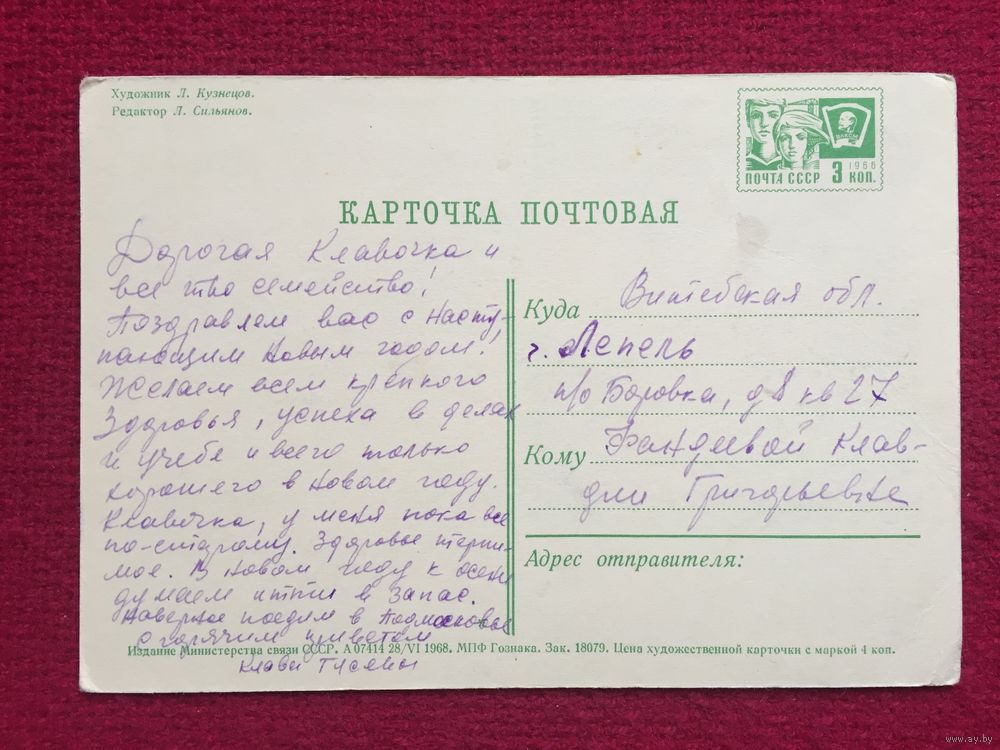 Художник Л. Кузнецов.
Редактор Л. Сильянов.
ВЛКСМ
1966
ПОЧТА СССР 3 КОП.
КАРТОЧКА ПОЧТОВАЯ
Дорогая Клавочка и
все тво семейство!
Поздравляем вас с насту-
пающим Новым годом!
Желаем всем крепкого
здоровья, успеха в делах
и учебе и всего только
хорошего в новом году.
Клавочка, у меня пока все
по-старому. Здоровье терпи-
мое. В новом году к осени
думаем итти в запас.
Наверное поедим в Подмосковье
с горячим приветом
Клави
Куда Витебская обл.
г. Лепель
п/о Боровка, д 8 кв 27
Кому Клав-
дии Григорьевне
Адрес отправителя:
Издание Министерства связи СССР. А 07414 28/VI 1968. МПФ Гознака. Зак. 18079. Цена художественной карточки с маркой 4 коп.
www.ay.by